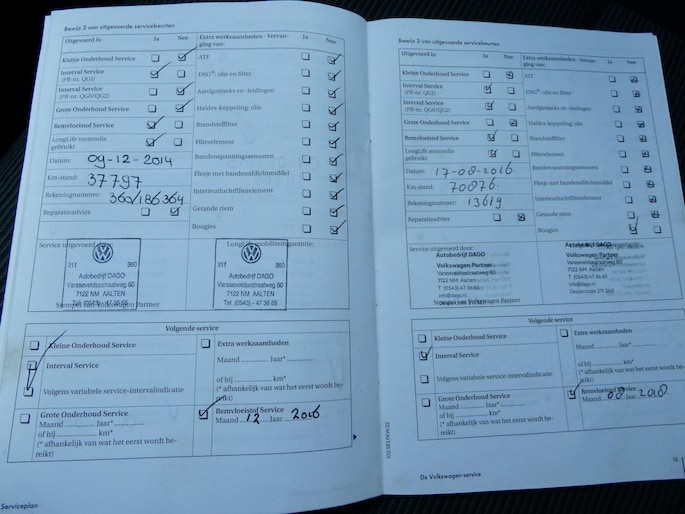 Bewijs 2 van uitgevoerde servicebeurten
Uitgevoerd is: Ja Nee
Kleine Onderhoud Service
Interval Service
(PR-nr. QG1)
Interval Service
(PR-nr. QG0/QG2)
Grote Onderhoud Service
Remvloeistof Service
LongLife motorolie
gebruikt
Datum: 09-12-2014
Km-stand: 37797
Rekeningnummer: 360/186364
Reparatieadvies
Extra werkzaamheden - Vervan-
ging van: Ja Nee
ATF
DSG®: olie en filter
Aardgastanks en -leidingen
Haldex-koppeling: olie
Brandstoffilter
Filterelement
Bandenspanningssensoren
Flesje met bandenafdichtmiddel
Interieurluchtfilterelement
Getande riem
Bougies
Service uitgevoerd door: LongLife mobiliteitsgarantie:
211 360
Autobedrijf DAGO
Varsseveldsestraatweg 80
7122 NM AALTEN
Tel. (0543) - 47 36 65
Stempel van Volkswagen Partner
211 360
Autobedrijf DAGO
Varsseveldsestraatweg 80
7122 NM AALTEN
Tel. (0543) - 47 36 65
Volgende service
Kleine Onderhoud Service
Interval Service
Volgens variabele service-intervalindicatie
Extra werkzaamheden
Maand ............ Jaar* ............
of bij ............ km*
(* afhankelijk van wat het eerst wordt be-
reikt)
Grote Onderhoud Service
Maand ............ Jaar* ............
of bij ............ km*
(* afhankelijk van wat het eerst wordt be-
reikt)
Remvloeistof Service
Maand 12 Jaar 2016
Serviceplan
Bewijs 3 van uitgevoerde servicebeurten
Uitgevoerd is: Ja Nee
Kleine Onderhoud Service
Interval Service
(PR-nr. QG1)
Interval Service
(PR-nr. QG0/QG2)
Grote Onderhoud Service
Remvloeistof Service
LongLife motorolie
gebruikt
Datum: 17-08-2016
Km-stand: 70876
Rekeningnummer: 13619
Reparatieadvies
Extra werkzaamheden - Vervan-
ging van: Ja Nee
ATF
DSG®: olie en filter
Aardgastanks en -leidingen
Haldex-koppeling: olie
Brandstoffilter
Filterelement
Bandenspanningssensoren
Flesje met bandenafdichtmiddel
Interieurluchtfilterelement
Getande riem
Bougies
Service uitgevoerd door:
Autobedrijf DAGO
Volkswagen Partner
Varsseveldsestraatweg 80
7122 NM AALTEN
T (0543) 47 36 65
info@dago.nl
Stempel van Volkswagen Partner
Autobedrijf DAGO
Volkswagen Partner
Varsseveldsestraatweg 80
7122 NM AALTEN
T (0543) 47 36 65
info@dago.nl
Dealercode 211 360
Volgende service
Kleine Onderhoud Service
Interval Service
Volgens variabele service-intervalindicatie
Extra werkzaamheden
Maand ............ Jaar* ............
of bij ............ km*
(* afhankelijk van wat het eerst wordt be-
reikt)
Grote Onderhoud Service
Maand ............ Jaar* ............
of bij ............ km*
(* afhankelijk van wat het eerst wordt be-
reikt)
Remvloeistof Service
Maand 08 Jaar 2018
De Volkswagen-service